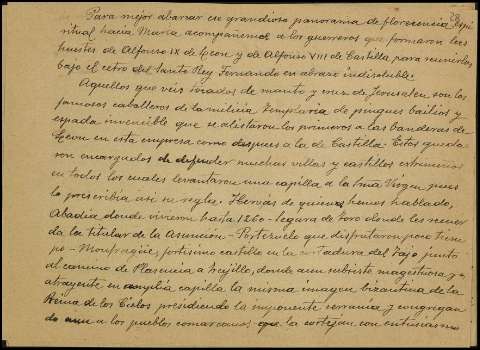 28
Para mejor abarcar ese grandioso panorama de florecencia espi
ritual hacia María acompañemos a los guerreros que formaron las
huestes de Alfonso IX de Leon y de Alfonso VIII de Castilla para reunirlos
bajo el cetro del Santo Rey Fernando en abrazo indisoluble.
Aquellos que veis de manto y cruz de Jerusalen son los
famosos caballeros de la milicia Templaria de pingues bailios y
espada invencible que se alistaron los primeros a las banderas de
Leon en esta empresa como despues a la de Castilla. Estos queda
ron encargados de defender muchas villas y castillos extremeños
en todos los cuales levantaron una capilla a la Sma Virgen pues
lo prescribia asi su regla. Hervás de quienes hemos hablado,
Abadia donde vivieron hasta 1260 - de Toro donde les recuer
da la titular de la Asunción - Portezuelo que disfrutaron poco tiem
po - Monfragüe, fortisimo castillo en la cortadura del Tajo junto
al camino de Plasencia a Trujillo, donde aun subsiste magestuosa y
atrayente en amplia capilla la misma imagen bizantina de la
Reina de los Cielos presidiendo la imponente serrania y congregan
do aun a los pueblos comarcanos que la cortejan con entusiasmo